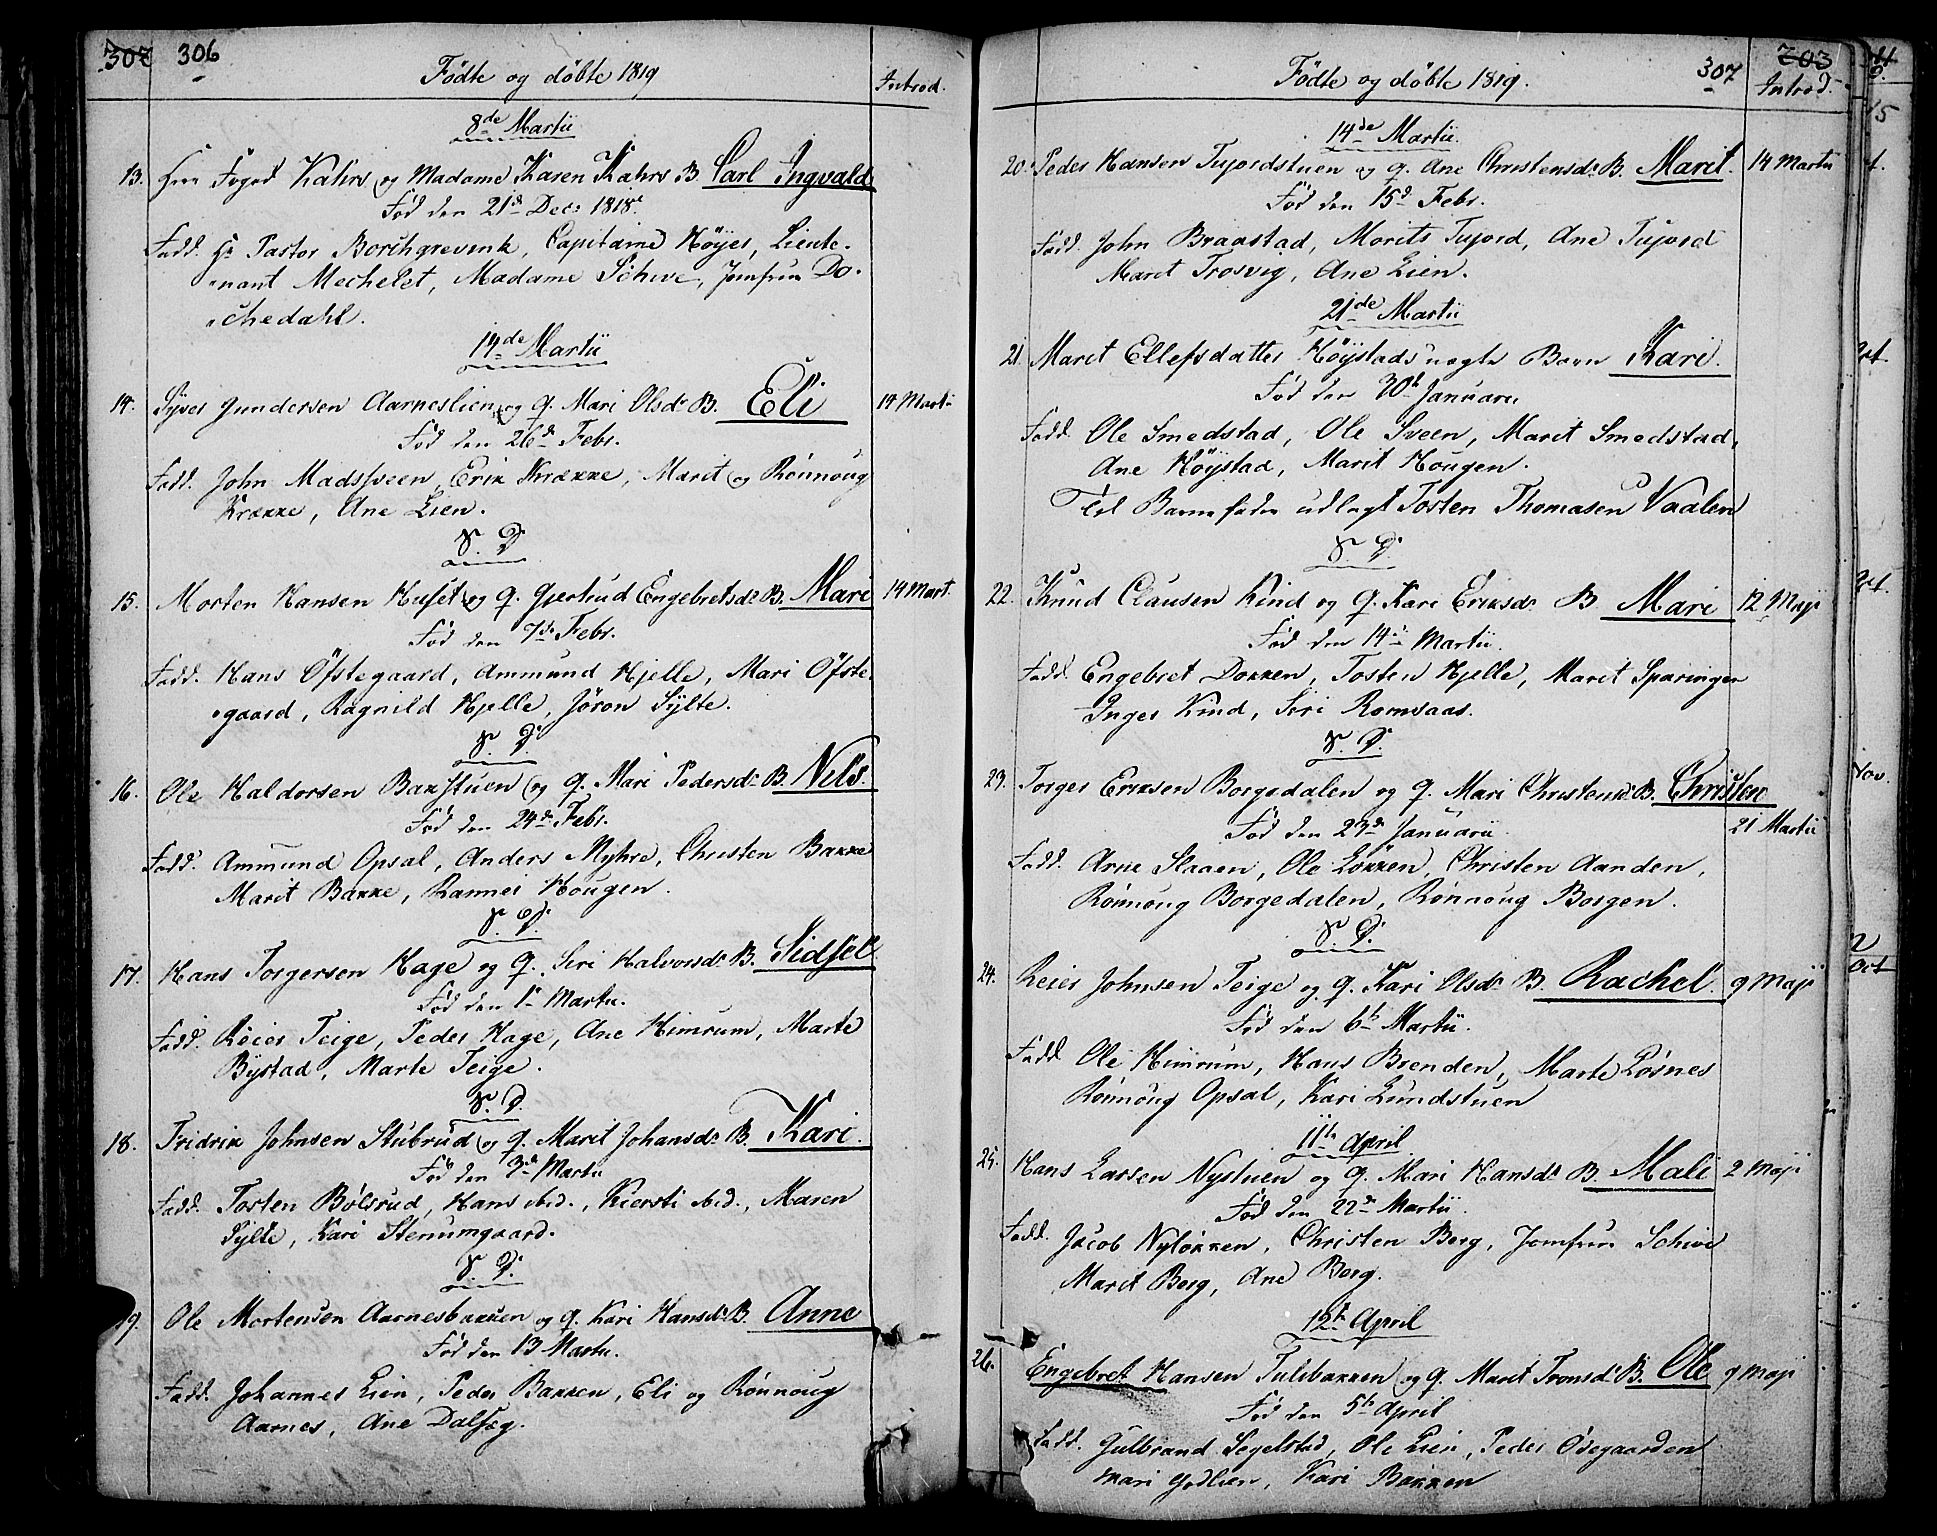 307 306
Fødte og døbte 1819
Introd.
8de Martii
13. Herr Foged Kahrs og Madame Karen Kahrs B. Carl Ingvald
Fød den 21d Decr 1818.
Fadd. Hr Pastor Borchgrevink, Capitaine Høyer, Lieute-
nant Mechelet, Madame Schive, Jomfrue Do-
chedahl.
14de Martii
14. Syver Gundersen Aarneslien og q. Mari Olsdr B. Eli 14 Martii
Fød den 26d Febr.
Fadd. John Madssveen, Erik Krække, Marit og Rønnoug
Krække, Ane Lien.
S. D.
15. Morten Hansen Huset og q. Gjertrud Engebretsdr B. Mari 14 Mart.
Fød den 7de Febr.
Fadd. Hans Øfstegaard, Ammund Hjelle, Mari Øfste-
gaard, Ragnild Hjelle, Jøron Sylte.
S. D.
16. Ole Haldorsen Bakstuen og q. Mari Pedersdr B. Nels.
Fød den 24de Febr.
Fadd. Ammund Opsal, Anders Myhre, Christen Bakke
Marit Bakke, Rannei Hougen.
S. D.
17. Hans Torgersen Hage og q. Siri Halvorsdr B. Sidsel
Fød den 1ste Martii.
Fadd. Reier Teige, Peder Hage, Ane Himrum, Marte
Bystad, Marte Teige.
S. D.
18. Fridrik Johnsen Stubrud og q. Marit Johansdr B. Kari.
Fød den 3de Martii
Fadd. Tosten Bølsrud, Hans ibid., Kiersti ibid., Maren
Sylte, Kari Stenumgaard.
S. D.
19. Ole Mortensen Aarnesbakken og q. Kari Hansdr B. Anne
Fød den 13 Martii.
Fadd. Johannes Lien, Peder Bakken, Eli og Rønnoug
Aarnes, Ane Dalseg.
Fødte og døbte 1819.
307 703
Introd.
14de Martii.
20. Peder Hansen Tujordstuen og q. Ane Christensdr B. Marit. 14 Martii
Fød den 15d Febr.
Fadd. John Braastad, Morits Tujord, Ane Tujord
Marit Trosvig, Ane Lien.
21de Martii
21. Marit Ellefsdatter Høystads uægte Barn Kari.
Fød den 30te Januarii
Fadd. Ole Smedstad, Ole Sveen, Marit Smedstad,
Ane Høystad, Marit Hougen.
Til Barnefader udlagt Tosten Thomasen Vaalen
S. D.
22. Knud Clausen Kind og q. Kari Eriksdr B. Mari 12 Maji
Fød den 14de Martii.
Fadd. Engebret Dokken, Tosten Hjelle, Marit Sparinger
Inger Kind, Siri Romsaas.
S. D.
23. Torger Eriksen Borgedalen og q. Mari Christensdr B. Christen
21 Martii
Fød den 23de Januarii.
Fadd. Arne Slaaen, Ole Løkken, Christen Aanden,
Rønnoug Borgedalen, Rønnoug Borgen.
S. D.
24. Reier Johnsen Teige og q. Kari Olsdr B. Rachel. 9 Maji
Fød den 6te Martii.
Fadd. Ole Himrum, Hans Brenden, Marte Løsnes
Rønnoug Opsal, Kari Lundstuen
11te April
25. Hans Larsen Nystuen og q. Mari Hansdr B. Mali 2 Maji
Fød den 22de Martii.
Fadd. Jacob Nyløkken, Christen Berg, Jomfrue Schive
Marit Berg, Ane Berg.
12te April
26. Engebret Hansen Tulibakken og q. Marit Tronsdr B. Ole 9 Maji
Fød den 5te April
Fadd. Gulbrand Segelstad, Ole Lien, Peder Ødegaarden
Mari Godlien, Kari Bakken